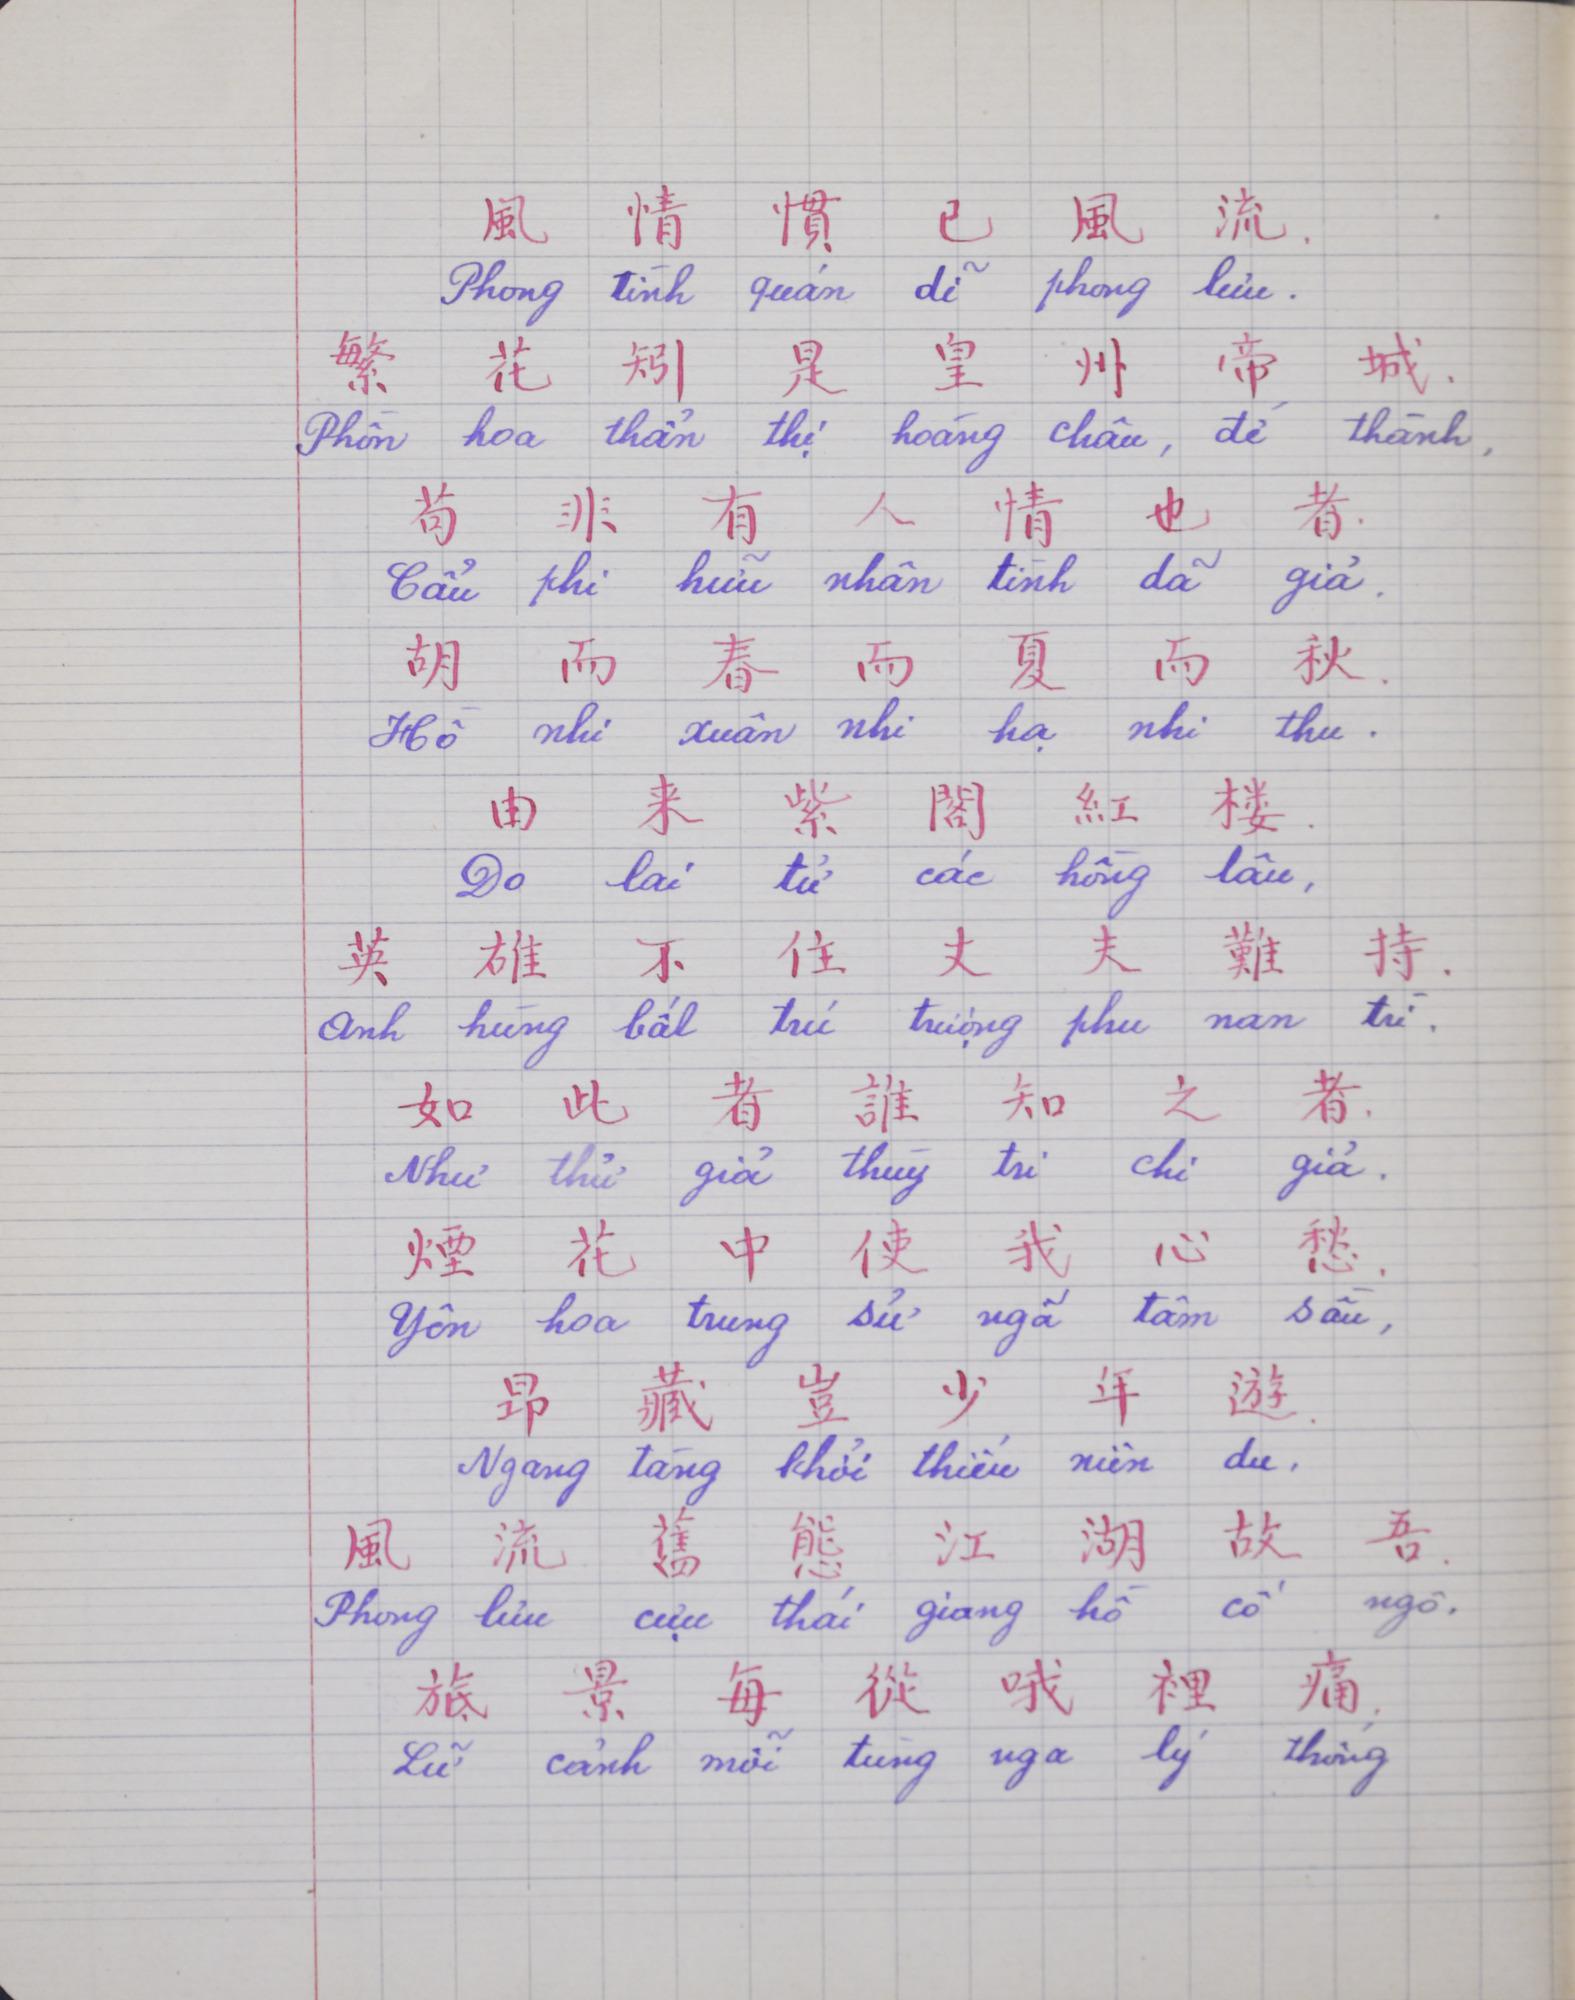 風 情 慣 已 風 流.
Phong tình quán dĩ phong lưu.
繁 花 矧 是 皇 州 帝 城.
Phồn hoa thẩn thị hoàng châu, đế thành,
苟 非 有 人 情 也 者.
Cẩu phi hữu nhân tình dã giả.
胡 而 春 而 夏 而 秋.
Hồ nhi xuân nhi hạ nhi thu.
由 来 紫 閣 紅 楼.
Do lai tử các hồng lâu,
英 雄 不 住 丈 夫 難 持.
Anh hùng bất trú trượng phu nan trì.
如 此 者 誰 知 之 者.
Như thử giả thùy tri chi giả.
煙 花 中 使 我 心 愁.
Yên hoa trung sử ngã tâm sầu,
昂 藏 豈 少 年 遊.
Ngang tàng khởi thiếu niên du.
風 流 舊 態 江 湖 故 吾.
Phong lưu cựu thái giang hồ cố ngô.
旅 景 每 從 哦 裡 痛.
Lữ cảnh mỗi tùng nga lý thống